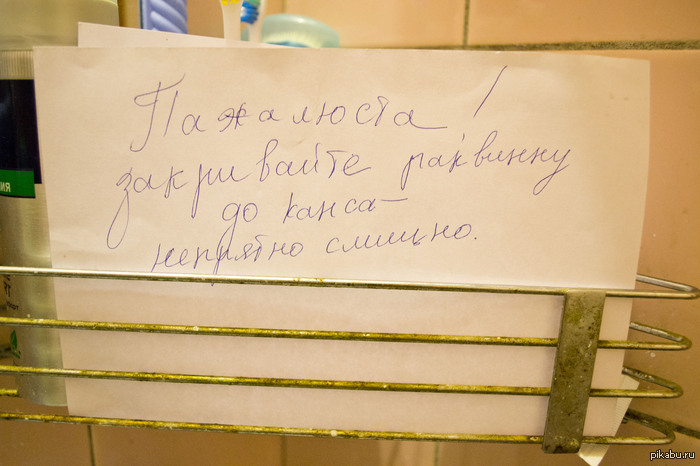 Пажалюста!
закривайте раквинну
до канса –
непрятно слищно.
ния
pikabu.ru